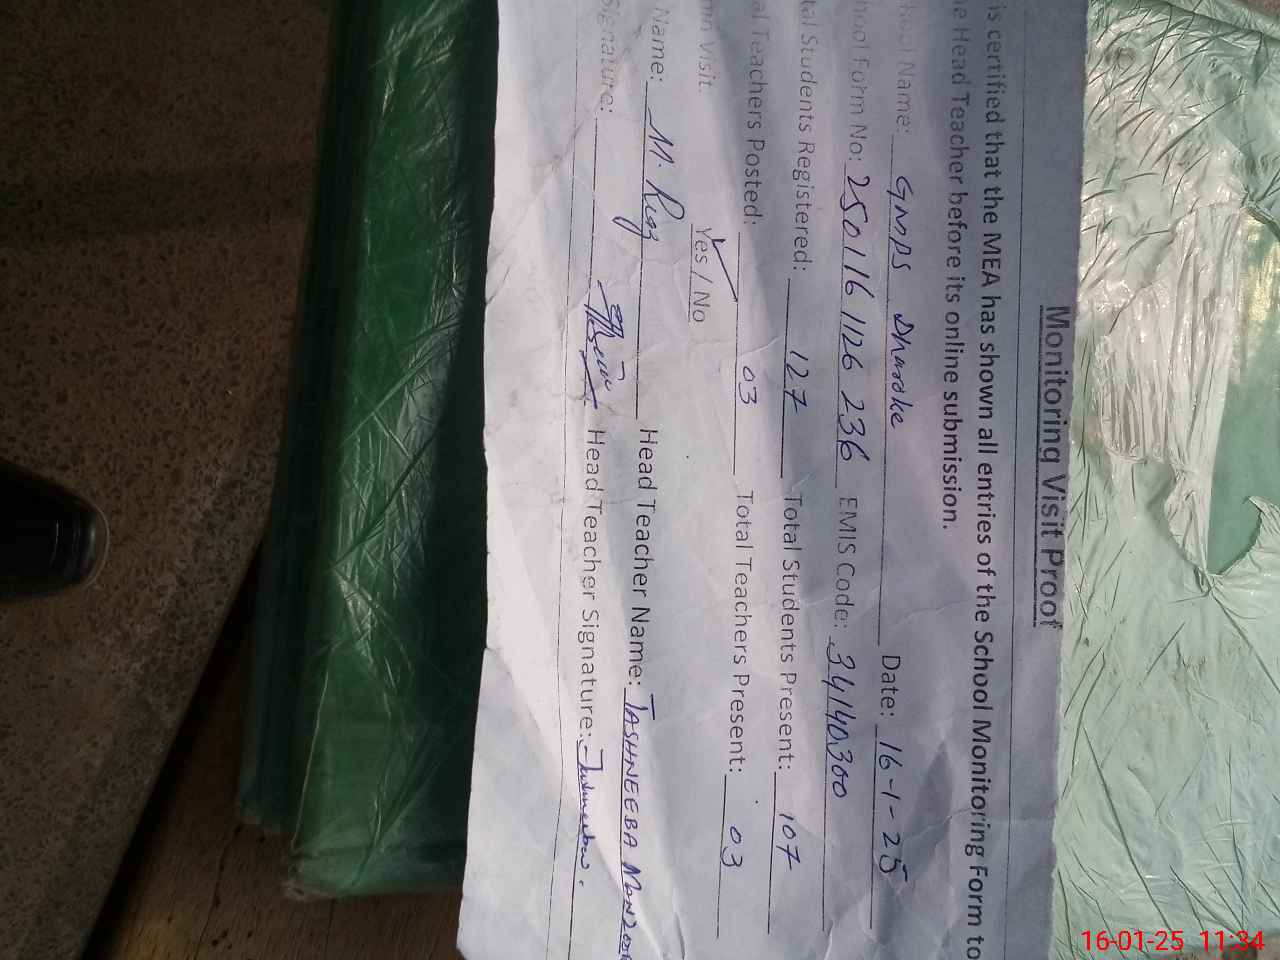 Monitoring Visit Proof
is certified that the MEA has shown all entries of the School Monitoring Form to
e Head Teacher before its online submission.
hool Name: GMPS Dhardke Date: 16-1-25
hool Form No: 250116 1126 236 EMIS Code: 34140300
tal Students Registered: 127 Total Students Present: 107
al Teachers Posted: 03 Total Teachers Present: 03
Visit. Yes / No
Name: M. Riaz Head Teacher Name: TASHNEEBA
Signature: Head Teacher Signature:
16-01-25 11:34